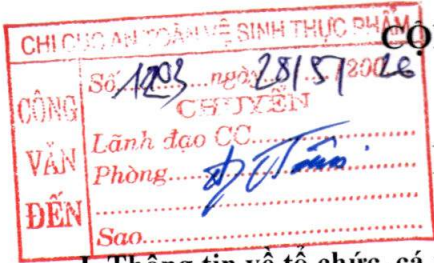 CHI CỤC AN TOÀN VỆ SINH THỰC PHẨM
CỘ
CÔNG VĂN ĐẾN
Số 1203 ngày 28/5/2026
CHUYỂN
Lãnh đạo CC
Phòng
Sao
I. Thông tin về tổ chức, cá